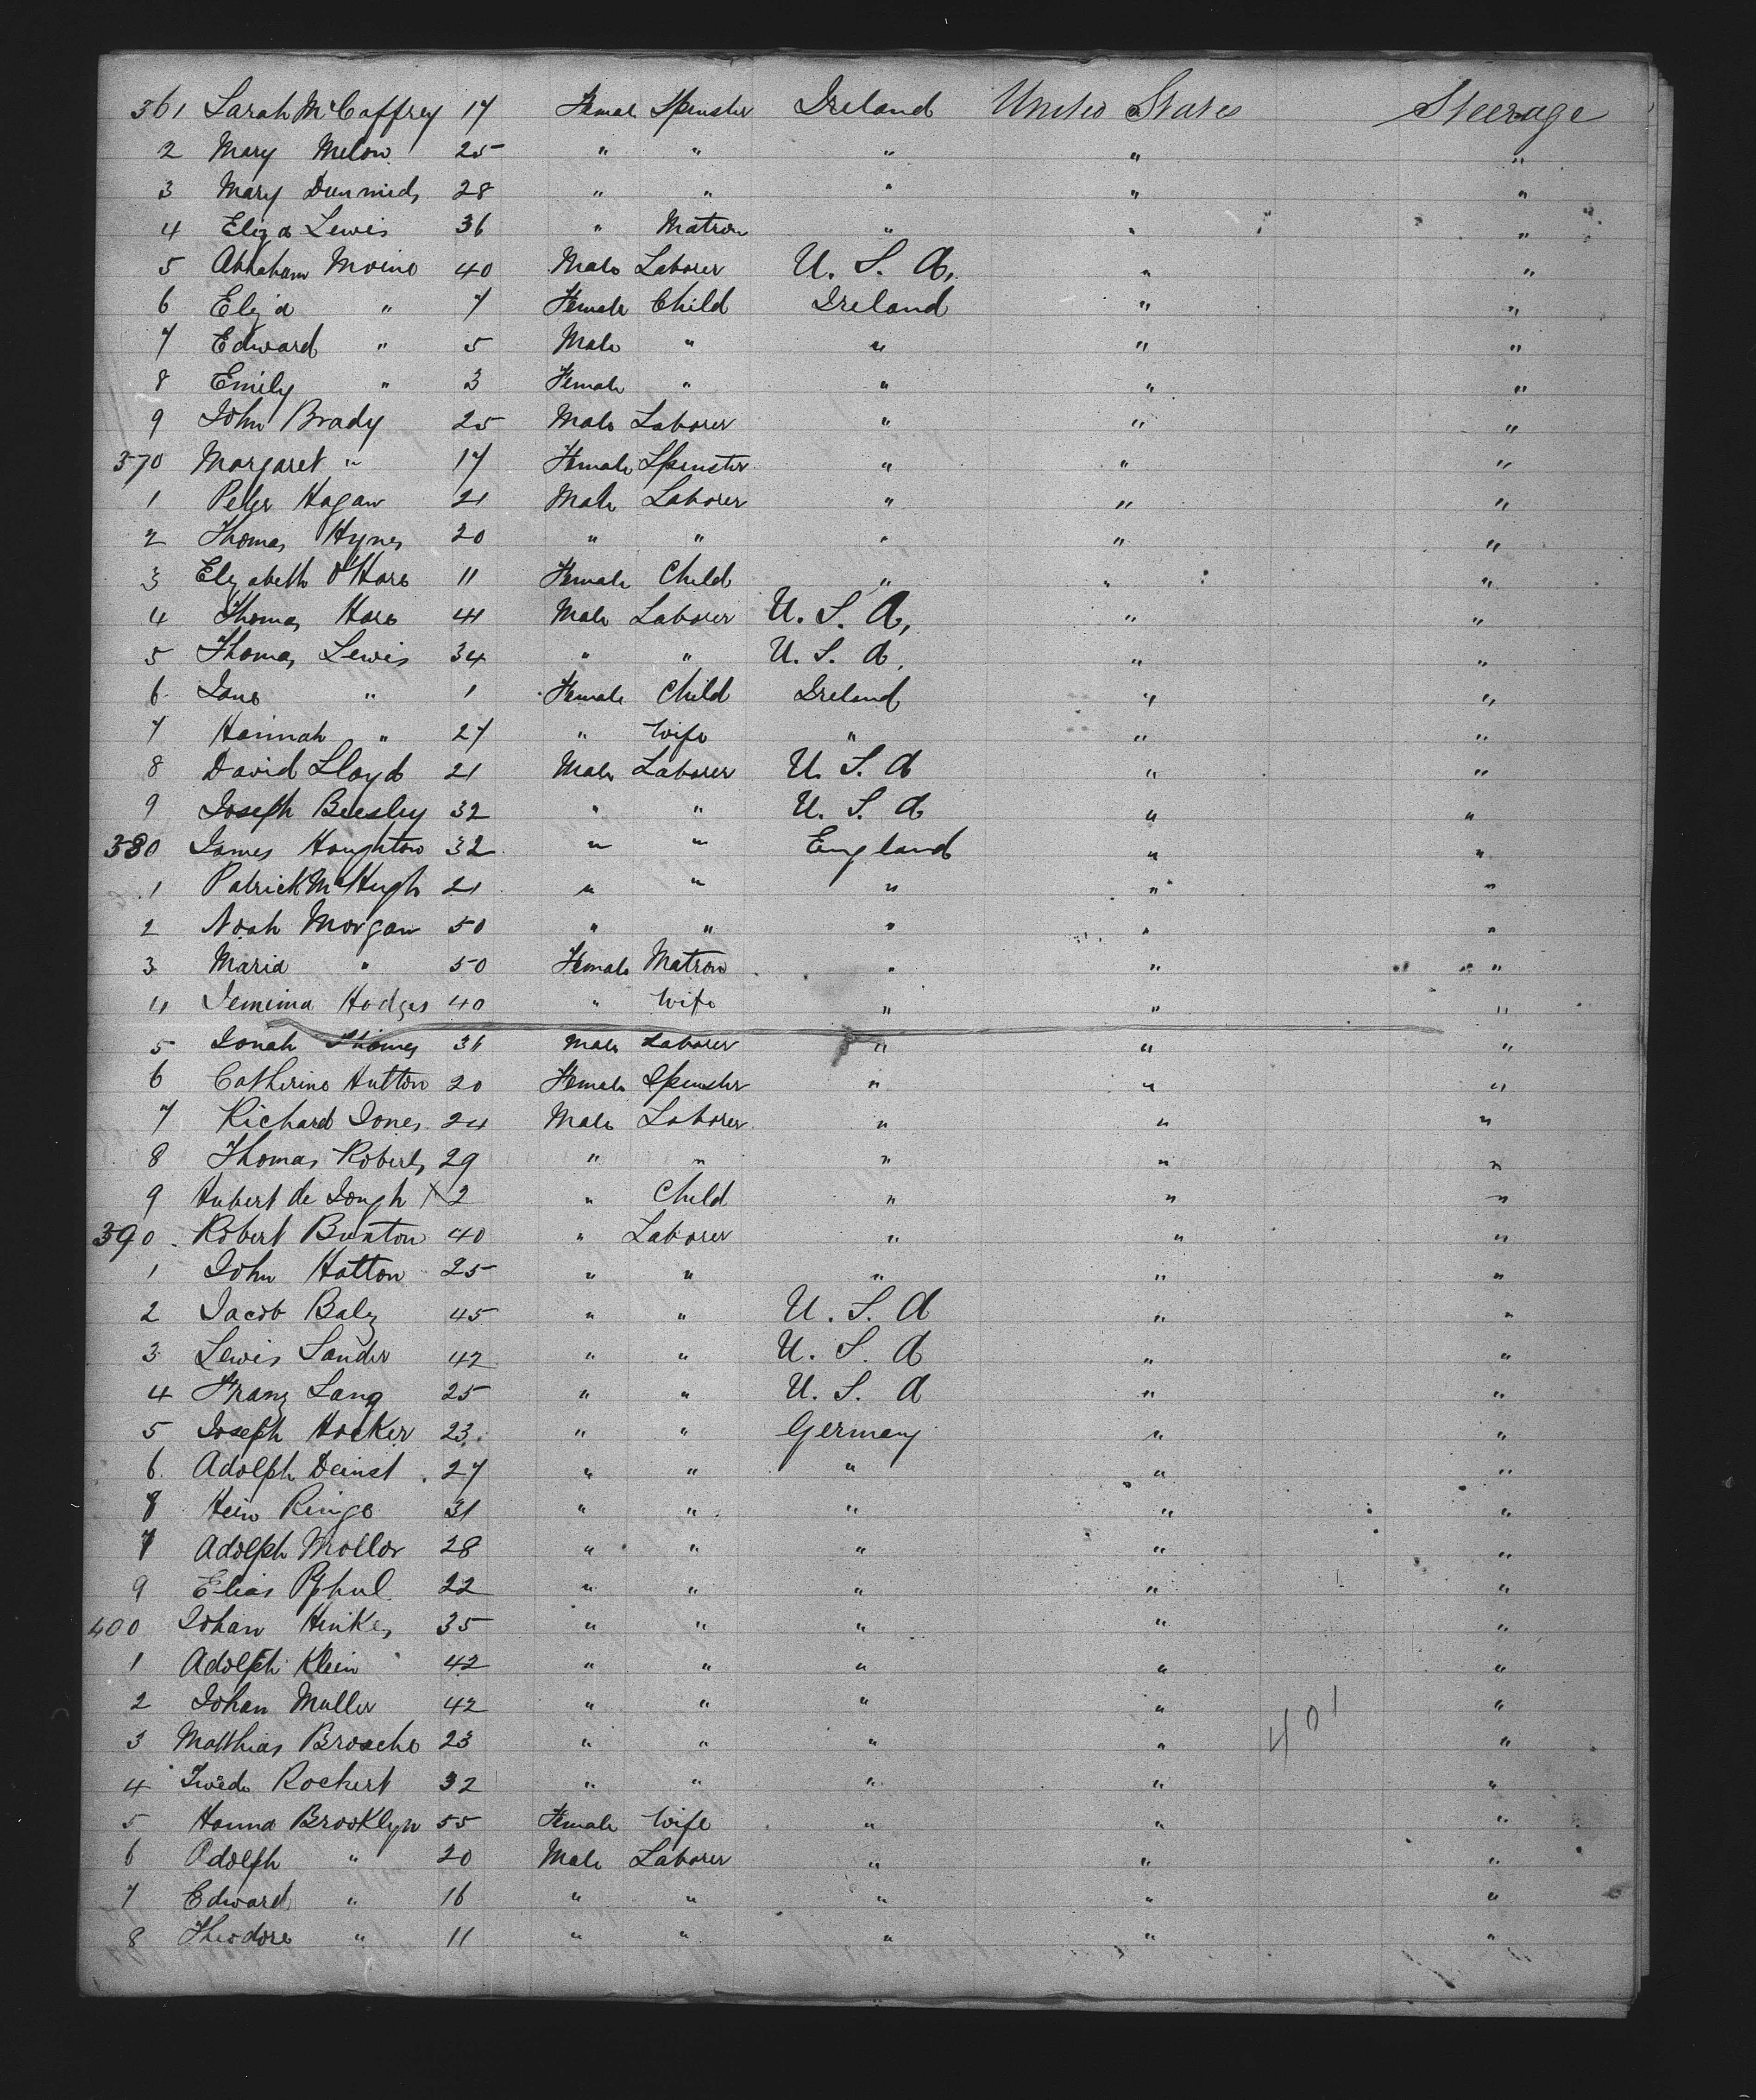 361 Sarah McCaffrey 17 Female Spinster Ireland United States Steerage
2 Mary Melow 25 " " " " "
3 Mary 28 " " " " "
4 Eliza Lewis 36 " Matron " " "
5 Abraham 40 Male Laborer U. S. A. " "
6 Eliza " 7 Female Child Ireland " "
7 Edward " 5 Male " " " "
8 Emily " 3 Female " " " "
9 John Brady 25 Male Laborer " " "
370 Margaret " 17 Female Spinster " " "
1 Peter Hagan 21 Male Laborer " " "
2 Thomas Hynes 20 " " " " "
3 Elizabeth O'Hare 11 Female Child " " "
4 Thomas Hare 41 Male Laborer U. S. A. " "
5 Thomas Lewis 34 " " U. S. A. " "
6 Jane " 1 Female Child Ireland " "
7 Hannah " 27 " Wife " " "
8 David Lloyd 21 Male Laborer U. S. A " "
9 Joseph Beesley 32 " " U. S. A " "
380 James Houghton 32 " " England " "
1 Patrick McHugh 21 " " " " "
2 Noah Morgan 50 " " " " "
3 Maria " 50 Female Matron " " "
4 Jemima Hodges 40 " Wife " " "
5 Jonah Thomas 36 Male Laborer " " "
6 Catherine Hutton 20 Female Spinster " " "
7 Richard Jones 24 Male Laborer " " "
8 Thomas Roberts 29 " " " " "
9 Hubert de Jongh X 2 " Child " " "
390 Robert Buxton 40 " Laborer " " "
1 John Hatton 25 " " " " "
2 Jacob Balz 45 " " U. S. A " "
3 Lewis Sander 42 " " U. S. A " "
4 Franz Lang 25 " " U. S. A " "
5 Joseph Hocker 23 " " Germany " "
6 Adolph Deinst 27 " " " " "
8 Hein Ringe 31 " " " " "
7 Adolph Mollor 28 " " " " "
9 Elias 22 " " " " "
400 Johan Hinkes 35 " " " " "
1 Adolph Klein 42 " " " " "
2 Johan Muller 42 " " " " "
401
3 Matthias Brosche 23 " " " " "
4 Rockert 32 " " " " "
5 Hanna Brooklyn 55 Female Wife " " "
6 Adolph " 20 Male Laborer " " "
7 Edward " 16 " " " " "
8 Theodore " 11 " " " " "